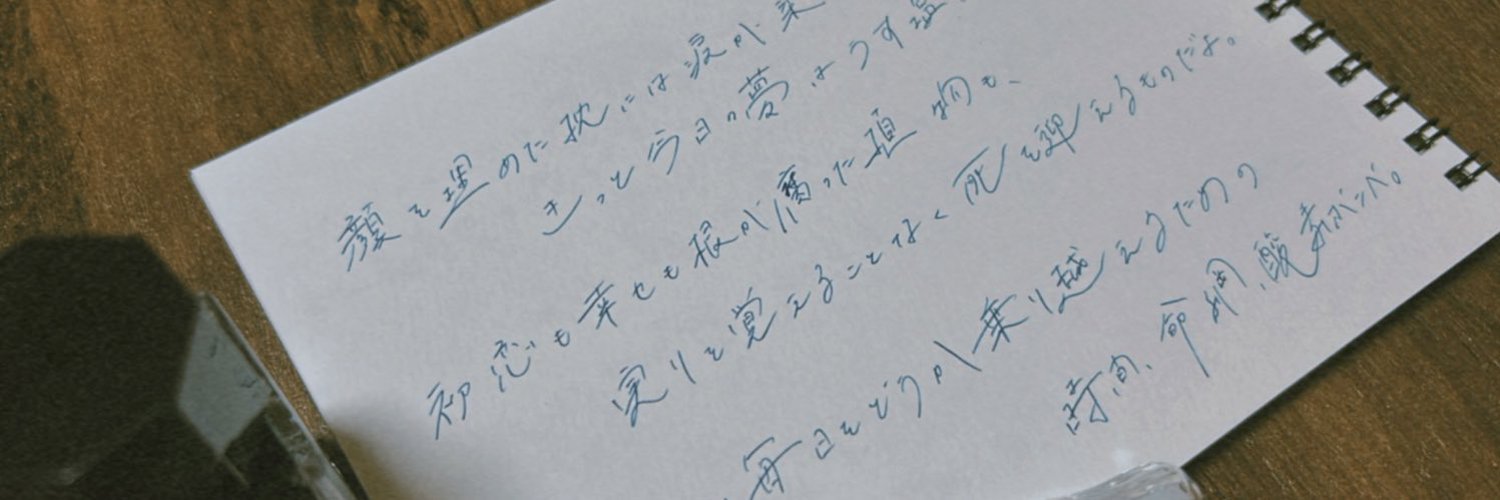 顔を埋めた枕には涙が
きっと今日の夢はうす
初恋も幸せも根が腐った植物も、
実りを覚えることなく死を迎えるものだよ。
毎日をどうか乗り越えるための
時間、命綱、酸素ボンベ。